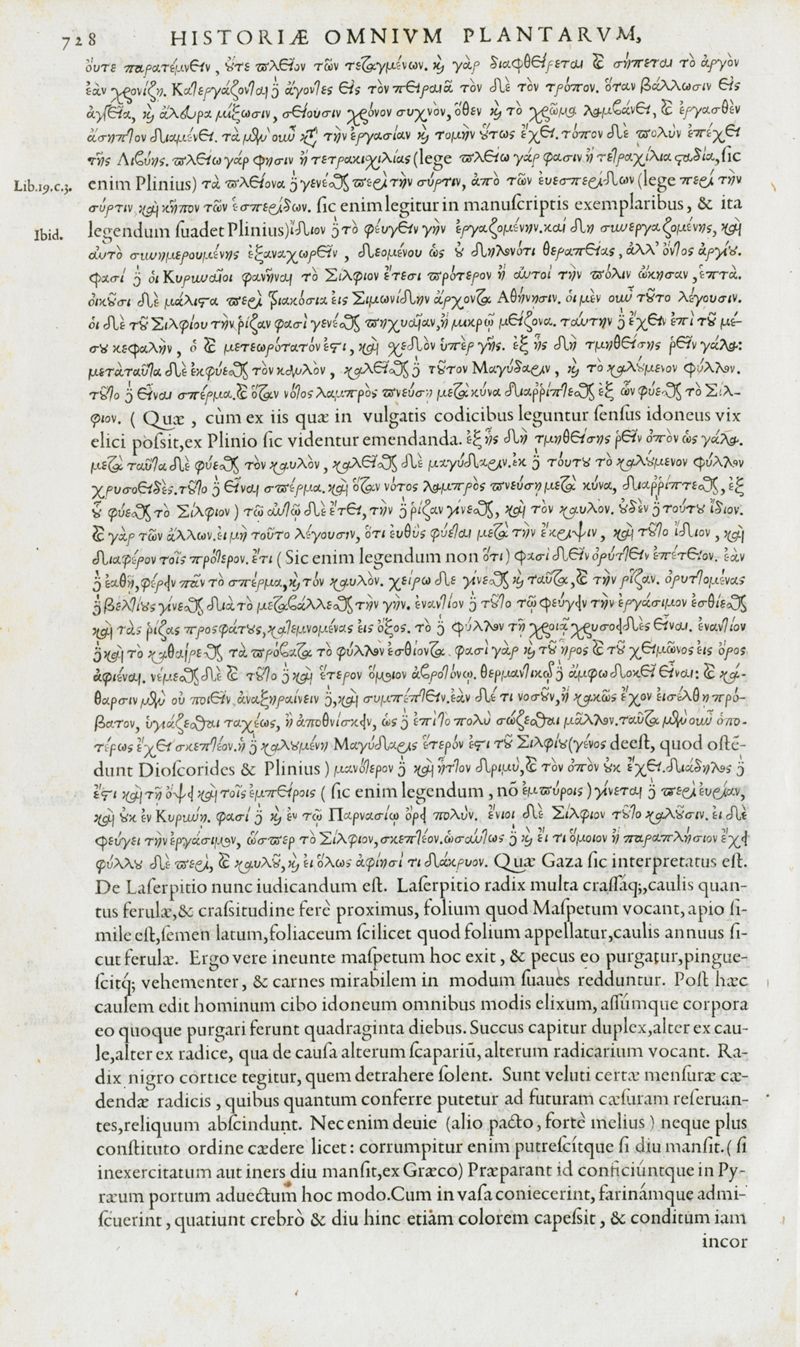 728 HISTORIÆ OMNIVM PLANTARVM,
οὔτε παρατέμνειν, οὔτε πλεῖον τῶν τεταγμένων. καὶ γὰρ διαφθείρεται καὶ σήπεται τὸ ἀργὸν
ἐὰν χρονίζῃ. Κατεργάζονται δὲ ἄγοντες εἰς τὸν πειραιᾶ τὸν δὲ τὸν τρόπον. ὅταν βάλλωσιν εἰς
ἀγγεῖα, καὶ ἄλευρα μίξωσιν, σείουσιν χρόνον συχνὸν, ὅθεν καὶ τὸ χρῶμα λαμβάνει, καὶ ἐργασθὲν
ἄσηπτον διαμένει. τὰ μὲν οὖν κατὰ τὴν ἐργασίαν καὶ τομὴν οὕτως ἔχει. τόπον δὲ πολὺν ἐπέχει
τῆς Λιβύης. πλείω γάρ φησιν ἢ τετρακισχιλίας (lege πλείω γάρ φασιν ἢ τετραχίλια ϛάδια, ſic
Lib.19.c.3. enim Plinius) τὰ πλείονα δὲ γενέσθαι περὶ τὴν σύρτιν, ἀπὸ τῶν ἐυεσπερίδων (lege περὶ τὴν
σύρτιν καὶ κῆπον τῶν ἑσπερίδων. ſic enim legitur in manuſcriptis exemplaribus, & ita
Ibid. legendum ſuadet Plinius) ἴδιον δὲ τὸ φεύγειν γὴν ἐργαζομένην. καί δη συνεργαζομένης, καὶ
αὐτὸ συνημερουμένης ἐξαναχωρεῖν, δεομένου ὡς οὐ δηλονότι θεραπείας, ἀλλ᾽ ὄντος ἀργίου.
φασί δὲ ὁι Κυρηναῖοι φανῆναι τὸ Σίλφιον ἔτεσι πρότερον ἢ αὐτοί τὴν πόλιν ὤκησαν, ἑπτά.
οἰκοῦσι δὲ μάλιϛα περὶ τριακόσια εἰς Σιμωνίδην ἄρχοντα Αθήνησιν. ὁι μὲν οὖν τοῦτο λέγουσιν.
ὁι δὲ τοῦ Σιλφίου τὴν ῥίζαν φασὶ γενέσθαι πηχυαίαν, ἢ μικρῷ μείζονα. ταύτην δὲ ἔχειν ἐπὶ τοῦ μέ-
σου κεφαλὴν, ὁ καὶ μετεωρότατόν ἐϛι, καὶ σχεδὸν ὑπὲρ γῆς. ἐξ ἧς δὴ τμηθείσης ῥεῖν γάλα:
μετὰ ταῦτα δὲ ἐκφύεσθαι τὸν καυλὸν, καλεῖσθαι δὲ τοῦτον Μαγύδαριν, καὶ τὸ καλούμενον φύλλον.
τοῦτο δὲ εἶναι σπέρμα. καὶ ὅταν νότος λαμπρὸς πνεύσῃ μετὰ κύνα διαῤῥίπτεσθαι ἐξ ὧν φύεσθαι τὸ Σίλ-
φιον. (Quæ, cùm ex iis quæ in vulgatis codicibus leguntur ſenſus idoneus vix
elici poſsit, ex Plinio ſic videntur emendanda. ἐξ ἧς δὴ τμηθείσης ῥεῖν ὀπὸν ὡς γάλα.
μετὰ ταῦτα δὲ φύεσθαι τὸν καυλὸν, καλεῖσθαι δὲ μαγύδαριν. ἐκ δὲ τούτου τὸ καλούμενον φύλλον
χρυσοειδές. τοῦτο δὲ εἶναι σπέρμα. καὶ ὅταν νότος λαμπρὸς πνεύσῃ μετὰ κύνα, διαῤῥίπτεσθαι, ἐξ
οὗ φύεσθαι τὸ Σίλφιον) τῷ αὐτῷ δὲ ἔτει, τὴν δὲ ῥίζαν γίνεσθαι, καὶ τὸν καυλόν. οὐδὲν δὲ τούτου ἴδιον.
καὶ γὰρ τῶν ἄλλων. εἰ μὴ τοῦτο λέγουσιν, ὅτι ἐυθὺς φύεται μετὰ τὴν ἔκριψιν, καὶ τοῦτο ἴδιον, καὶ
διαφέρον τοῖς πρότερον. ἔτι (Sic enim legendum non ὅτι) φασὶ δεῖν ὀρύττειν ἐπέτειον. ἐὰν
δὲ ἐαθῇ, φέρειν πᾶν τὸ σπέρμα, καὶ τόν καυλὸν. χείρω δὲ γίνεσθαι καὶ ταῦτα, καὶ τὴν ῥίζαν. ὀρυττομένας
δὲ βελτίους γίνεσθαι διὰ τὸ μεταβάλλεσθαι τὴν γὴν. ἐναντίον δὲ τοῦτο τῷ φεύγειν τὴν ἐργάσιμον ἐσθίεσθαι
καὶ τὰς ῥίζας προσφάτους, κατεμνομένας εἰς ὄξος. τὸ δὲ φύλλον τῇ χροιᾷ χρυσοειδὲς εἶναι. ἐναντίον
δὲ καὶ τὸ καθαίρεσθαι τὰ πρόβατα τὸ φύλλον ἐσθίοντα. φασὶ γὰρ καὶ τοῦ ἦρος καὶ τοῦ χειμῶνος εἰς ὄρος
ἀφιέναι. νέμεσθαι δὲ καὶ τοῦτο δὲ καὶ ἕτερον ὅμοιον ἀβροτόνῳ. θερμαντικὰ δὲ ἄμφω δοκεῖ εἶναι: καὶ κά-
θαρσιν μὲν οὐ ποιεῖν, ἀναξηραίνειν δὲ, καὶ συμπέπτειν. ἐὰν δέ τι νοσοῦν, ἢ κακῶς ἔχον εἰσέλθῃ πρό-
βατον, ὑγιάζεσθαι ταχέως, ἢ ἀποθνίσκειν, ὡς δὲ ἐπὶ τὸ πολὺ σώζεσθαι μᾶλλον. ταῦτα μὲν οὖν ὁπο-
τέρως ἔχει σκεπτέον. ἡ δὲ καλουμένη Μαγύδαρις ἕτερόν ἐϛι τοῦ Σιλφίου (γένος deeſt, quod oſtē-
dunt Dioſcorides & Plinius) μανότερον δὲ καὶ ἧττον δριμὺ, καὶ τὸν ὀπὸν οὐκ ἔχει. διάδηλος δὲ
ἐϛι καὶ τῇ ὄψει καὶ τοῖς ἐμπείροις (ſic enim legendum, nō ἐμπύροις) γίνεται δὲ περὶ ἑυρίαν,
καὶ οὐκ ἐν Κυρήνῃ. φασί δὲ καὶ ἐν τῷ Παρνασίῳ ὄρει πολύν. ἔνιοι δὲ Σίλφιον τοῦτο καλοῦσιν. εἰ δὲ
φεύγει τὴν ἐργάσιμον, ὥσπερ τὸ Σίλφιον, σκεπτέον. ὡσαύτως δὲ καὶ εἴ τι ὅμοιον ἢ παραπλήσιον ἔχει
φύλλου δὲ περὶ, καὶ καυλοῦ, καὶ εἰ ὅλως ἀφίησί τι δάκρυον. Quæ Gaza ſic interpretatus eſt.
De Laſerpitio nunc iudicandum eſt. Laſerpitio radix multa craſſáq;, caulis quan-
tus ferulæ, & craſsitudine ferè proximus, folium quod Maſpetum vocant, apio ſi-
mile eſt, ſemen latum, foliaceum ſcilicet quod folium appellatur, caulis annuus ſi-
cut ferulæ. Ergo vere ineunte maſpetum hoc exit, & pecus eo purgatur, pingue-
ſcitq́; vehementer, & carnes mirabilem in modum ſuaues redduntur. Poſt hæc
caulem edit hominum cibo idoneum omnibus modis elixum, aſſúmque corpora
eo quoque purgari ferunt quadraginta diebus. Succus capitur duplex, alter ex cau-
le, alter ex radice, qua de cauſa alterum ſcapariū, alterum radicarium vocant. Ra-
dix nigro cortice tegitur, quem detrahere ſolent. Sunt veluti certæ menſuræ cæ-
dendæ radicis, quibus quantum conferre putetur ad futuram cæſuram reſeruan-
tes, reliquum abſcindunt. Nec enim deuie (alio pacto, fortè melius) neque plus
conſtituto ordine cædere licet: corrumpitur enim putreſcítque ſi diu manſit. (ſi
inexercitatum aut iners diu manſit, ex Græco) Præparant id conficiúntque in Py-
ræum portum aduectum hoc modo. Cum in vaſa coniecerint, farinámque admi-
ſcuerint, quatiunt crebrò & diu hinc etiàm colorem capeſsit, & conditum iam
incor